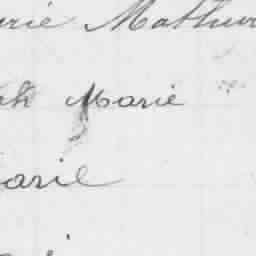 rie Mathur
ph Marie
arie